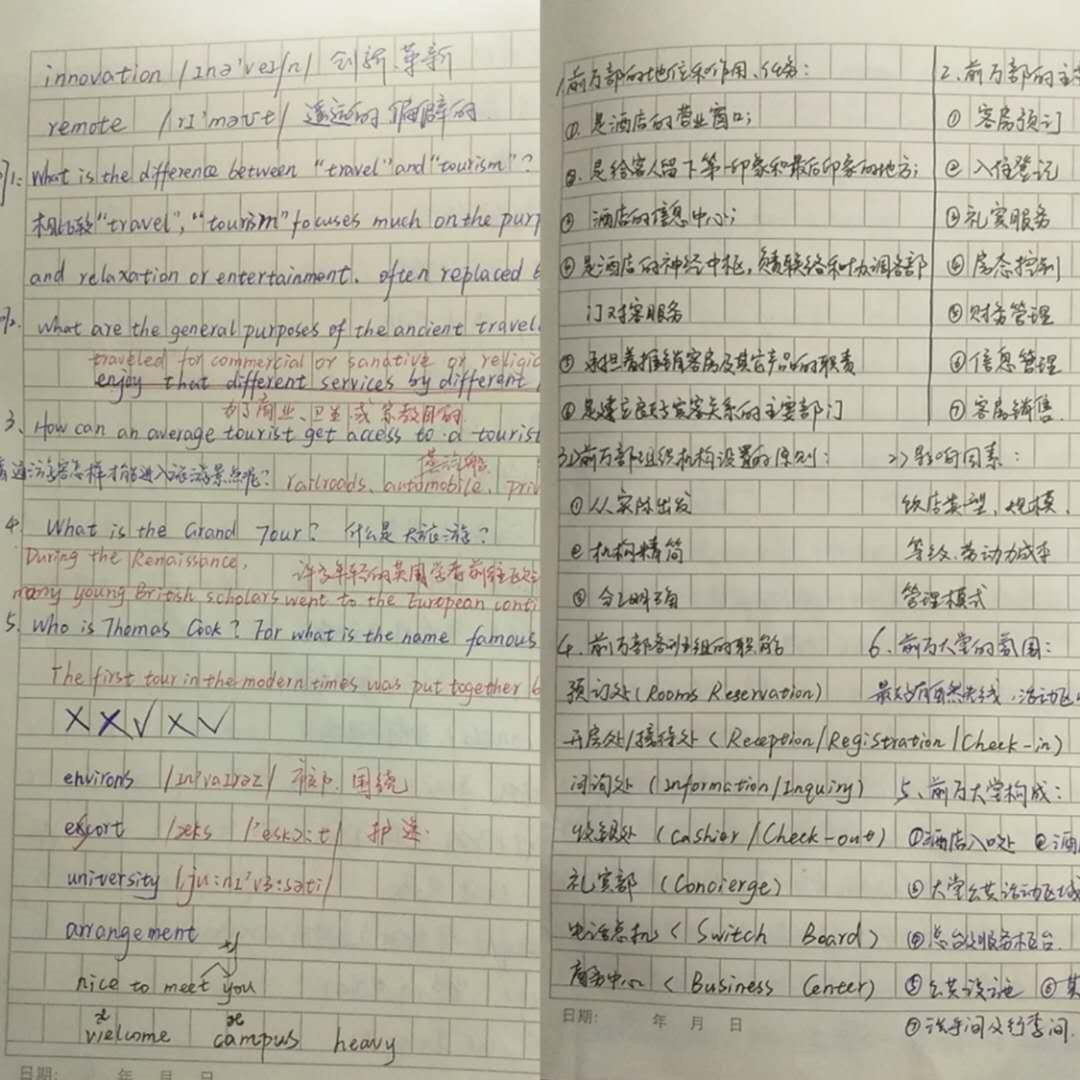 innovation /ɪnə'veɪʃn/ 创新 革新
remote /rɪ'məʊt/ 遥远的 偏僻的
1: What is the difference between "travel" and "tourism"?
相比较"travel", "tourism" focuses much on the purp
and relaxation or entertainment. often replaced b
2. what are the general purposes of the ancient travel
traveled for commercial or sanative or religio
enjoy that different services by different
为了商业、卫生或宗教目的
3. How can an average tourist get access to a tourist
普通游客怎样才能进入旅游景点呢? railroads、automobile、priv
4. What is the Grand Tour? 什么是大旅游?
During the Renaissance, 许多年轻的英国学者前往
many young British scholars went to the European conti
5. Who is Thomas Cook? For what is the name famous
The first tour in the modern times was put together b
X X √ X √
environs /ɪn'vaɪrəz/ 围绕
escort /'eskɔ:t/ 护送
university /ju:nɪ'vɜ:səti/
arrangement
nice to meet you
welcome campus heavy
日期: 年 月 日
1.前厅部的地位和作用、任务:
①. 是酒店的营业窗口;
②. 是给客人留下第一印象和最后印象的地方;
③ 酒店的信息中心;
④ 是酒店的神经中枢,负责联络和协调各部
门对客服务
⑤ 承担着推销客房及其它产品的职责
⑥ 是建立良好宾客关系的主要部门
2、前厅部的主
① 客房预订
② 入住登记
③ 礼宾服务
④ 房态控制
⑤ 财务管理
⑥ 信息管理
⑦ 客房销售
3、1)前厅部组织机构设置的原则: 2) 影响因素:
① 从实际出发 饭店类型,规模,
② 机构精简 等级、劳动力成本
③ 分工明确 管理模式
4、前厅部各班组的职能 6、前厅大堂的氛围:
预订处(Rooms Reservation) 最好有自然光线,活动区
开房处/接待处 (Reception/Registration/Check-in)
问询处 (Information/Inquiry) 5、前厅大堂构成:
收银处 (Cashier/Check-out) ①酒店入口处 ②酒
礼宾部 (Concierge) ③ 大堂公共活动区域
电话总机 (Switch Board) ④ 总台及服务柜台
商务中心 (Business Center) ⑤ 公共设施 ⑥ 其
⑦ 洗手间及行李间.
日期: 年 月 日